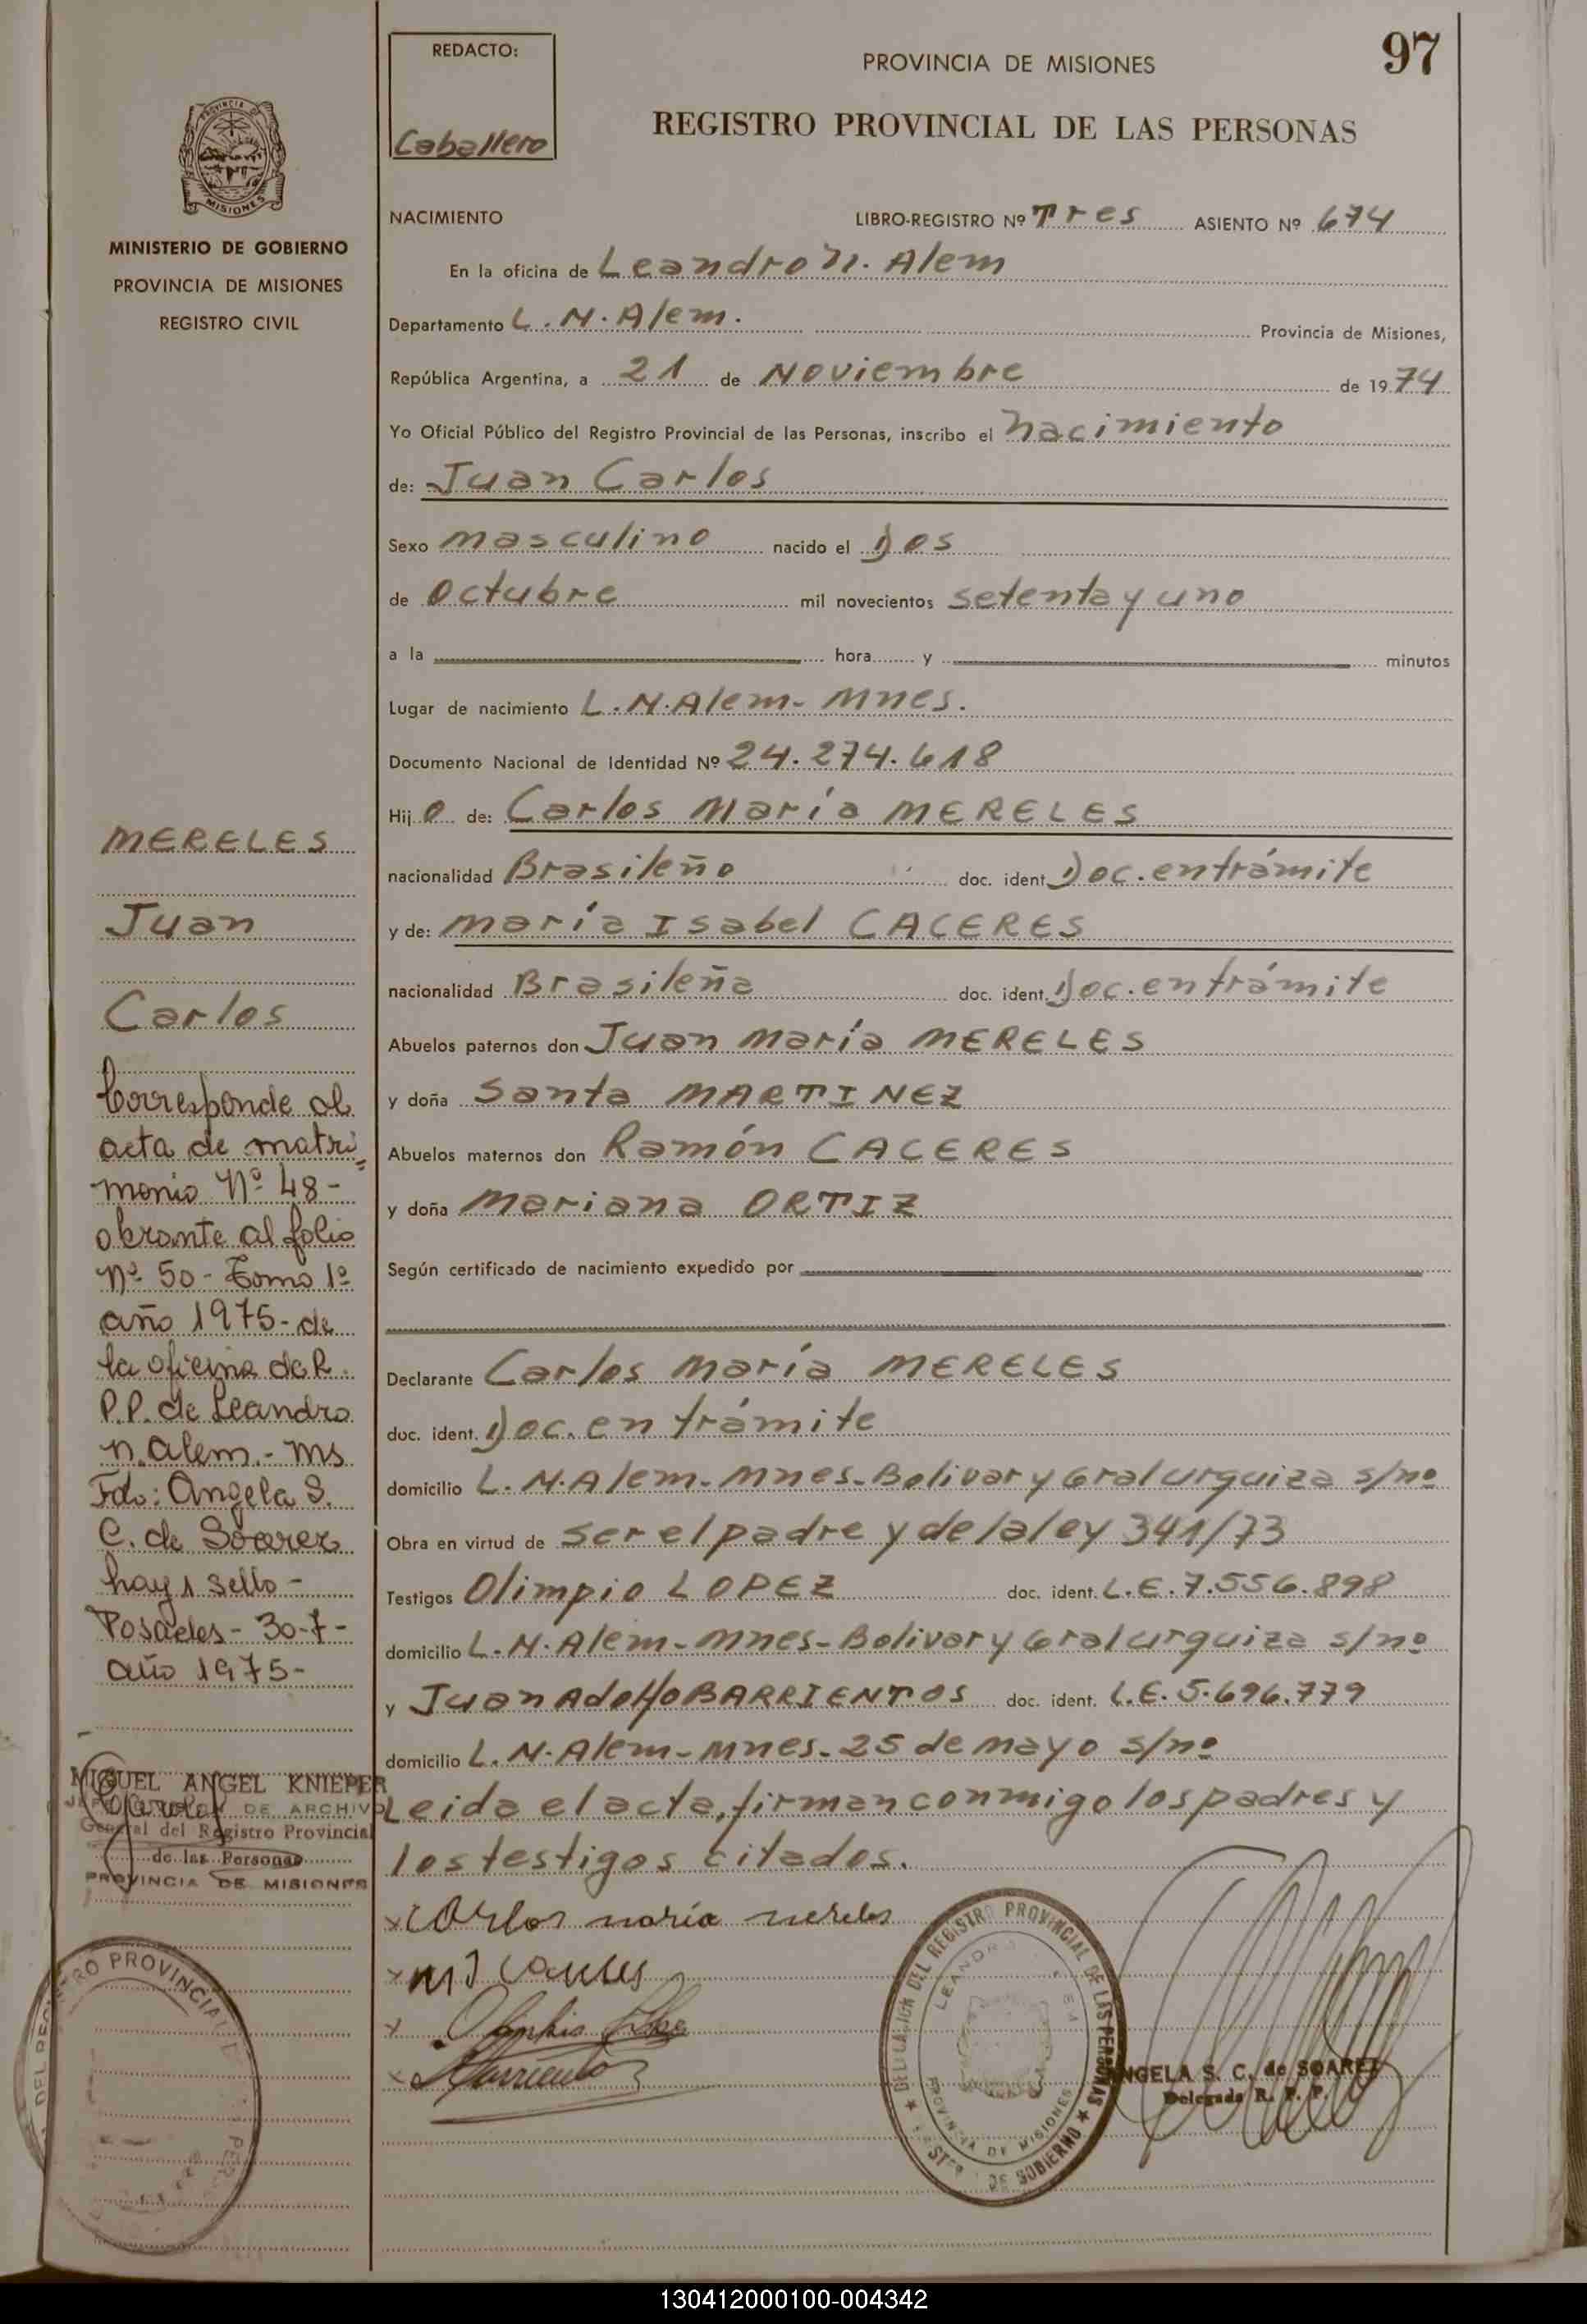 REDACTO:
Caballero
PROVINCIA DE MISIONES
97
REGISTRO PROVINCIAL DE LAS PERSONAS
PROVINCIA DE
MISIONES
MINISTERIO DE GOBIERNO
PROVINCIA DE MISIONES
REGISTRO CIVIL
NACIMIENTO LIBRO-REGISTRO Nº Tres ASIENTO Nº 674
En la oficina de Leandro N. Alem
Departamento L.N.Alem. Provincia de Misiones,
República Argentina, a 21 de Noviembre de 1974
Yo Oficial Público del Registro Provincial de las Personas, inscribo el nacimiento
de: Juan Carlos
Sexo masculino nacido el Dos
de Octubre mil novecientos setenta y uno
a la hora y minutos
Lugar de nacimiento L.N.Alem- Mnes.
Documento Nacional de Identidad Nº 24.274.618
Hijo de: Carlos María MERELES
nacionalidad Brasileño doc. ident. Doc. en trámite
y de: María Isabel CACERES
nacionalidad Brasileña doc. ident. Doc. en trámite
Abuelos paternos don Juan María MERELES
y doña Santa MARTINEZ
Abuelos maternos don Ramón CACERES
y doña Mariana ORTIZ
Según certificado de nacimiento expedido por
Declarante Carlos María MERELES
doc. ident. Doc. en trámite
domicilio L.N.Alem-Mnes-Bolivar y Gral Urquiza s/nº
Obra en virtud de ser el padre y de la ley 341/73
Testigos Olimpio LOPEZ doc. ident. L.E.7.556.898
domicilio L.N.Alem-Mnes-Bolivar y Gral Urquiza s/nº
y Juan Adolfo BARRIENTOS doc. ident. L.E. 5.696.779
domicilio L.N.Alem-Mnes-25 de mayo s/nº
Leida el acta, firman conmigo los padres y
los testigos citados.
x Carlos maría mereles
x M I Caceres
x
x Barrientos
MERELES
Juan
Carlos
Corresponde al
acta de matri=
monio Nº 48-
obrante al folio
Nº 50- Tomo 1º
año 1975- de
la oficina de R.
P.P. de Leandro
n. alem.- Ms
Fdo: Angela S.
C. de Soarez
hay 1 sello-
Posadas- 30-7-
año 1975-
MIGUEL ANGEL KNIEPER
DE ARCHIVO
General del Registro Provincial
de las Personas
PROVINCIA DE MISIONES
DEL REGISTRO PROVINCIAL
DELEGACION DEL REGISTRO PROVINCIAL DE LAS PERSONAS
PROVINCIA DE MISIONES
DE GOBIERNO
ANGELA S. C. de SOAREZ
Delegada R. P. P.
130412000100-004342